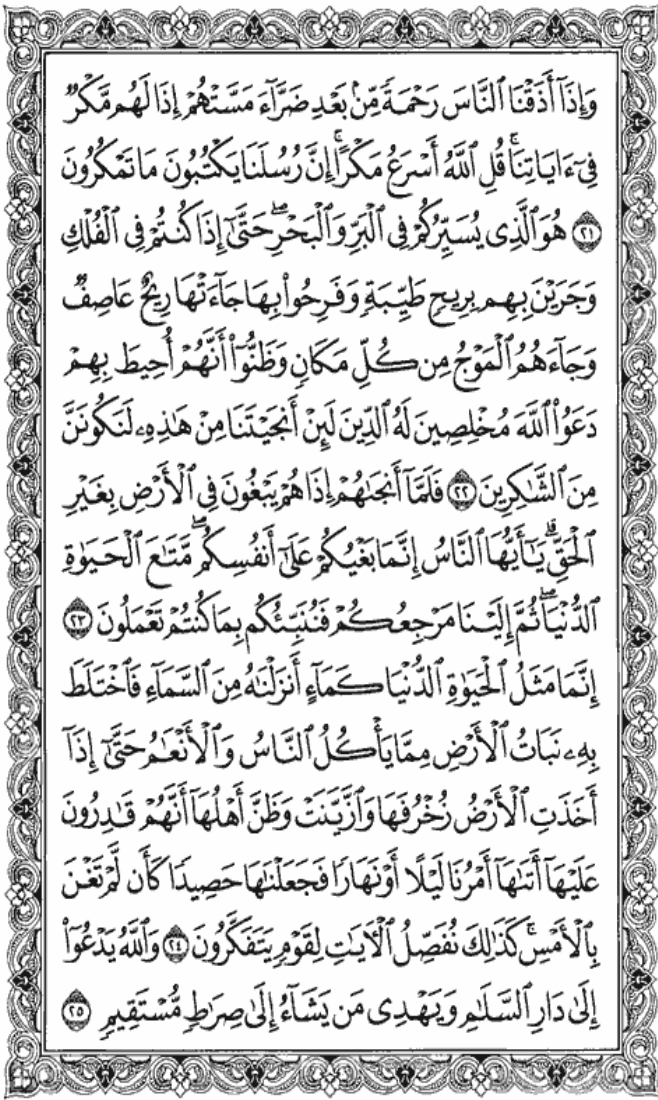 وَإِذَآ أَذَقْنَا ٱلنَّاسَ رَحْمَةً مِّنۢ بَعْدِ ضَرَّآءَ مَسَّتْهُمْ إِذَا لَهُم مَّكْرٌ
فِىٓ ءَايَاتِنَا ۚ قُلِ ٱللَّهُ أَسْرَعُ مَكْرًا ۚ إِنَّ رُسُلَنَا يَكْتُبُونَ مَا تَمْكُرُونَ
٢١ هُوَ ٱلَّذِى يُسَيِّرُكُمْ فِى ٱلْبَرِّ وَٱلْبَحْرِ ۖ حَتَّىٰٓ إِذَا كُنتُمْ فِى ٱلْفُلْكِ
وَجَرَيْنَ بِهِم بِرِيحٍ طَيِّبَةٍ وَفَرِحُوا۟ بِهَا جَآءَتْهَا رِيحٌ عَاصِفٌ
وَجَآءَهُمُ ٱلْمَوْجُ مِن كُلِّ مَكَانٍ وَظَنُّوٓا۟ أَنَّهُمْ أُحِيطَ بِهِمْ
دَعَوُا۟ ٱللَّهَ مُخْلِصِينَ لَهُ ٱلدِّينَ لَئِنْ أَنجَيْتَنَا مِنْ هَٰذِهِۦ لَنَكُونَنَّ
مِنَ ٱلشَّٰكِرِينَ ٢٢ فَلَمَّآ أَنجَىٰهُمْ إِذَا هُمْ يَبْغُونَ فِى ٱلْأَرْضِ بِغَيْرِ
ٱلْحَقِّ ۗ يَٰٓأَيُّهَا ٱلنَّاسُ إِنَّمَا بَغْيُكُمْ عَلَىٰٓ أَنفُسِكُم ۖ مَّتَٰعَ ٱلْحَيَوٰةِ
ٱلدُّنْيَا ۖ ثُمَّ إِلَيْنَا مَرْجِعُكُمْ فَنُنَبِّئُكُم بِمَا كُنتُمْ تَعْمَلُونَ ٢٣
إِنَّمَا مَثَلُ ٱلْحَيَوٰةِ ٱلدُّنْيَا كَمَآءٍ أَنزَلْنَٰهُ مِنَ ٱلسَّمَآءِ فَٱخْتَلَطَ
بِهِۦ نَبَاتُ ٱلْأَرْضِ مِمَّا يَأْكُلُ ٱلنَّاسُ وَٱلْأَنْعَٰمُ حَتَّىٰٓ إِذَآ
أَخَذَتِ ٱلْأَرْضُ زُخْرُفَهَا وَٱزَّيَّنَتْ وَظَنَّ أَهْلُهَآ أَنَّهُمْ قَٰدِرُونَ
عَلَيْهَآ أَتَىٰهَآ أَمْرُنَا لَيْلًا أَوْ نَهَارًا فَجَعَلْنَٰهَا حَصِيدًا كَأَن لَّمْ تَغْنَ
بِٱلْأَمْسِ ۚ كَذَٰلِكَ نُفَصِّلُ ٱلْءَايَٰتِ لِقَوْمٍ يَتَفَكَّرُونَ ٢٤ وَٱللَّهُ يَدْعُوٓا۟
إِلَىٰ دَارِ ٱلسَّلَٰمِ وَيَهْدِى مَن يَشَآءُ إِلَىٰ صِرَٰطٍ مُّسْتَقِيمٍ ٢٥